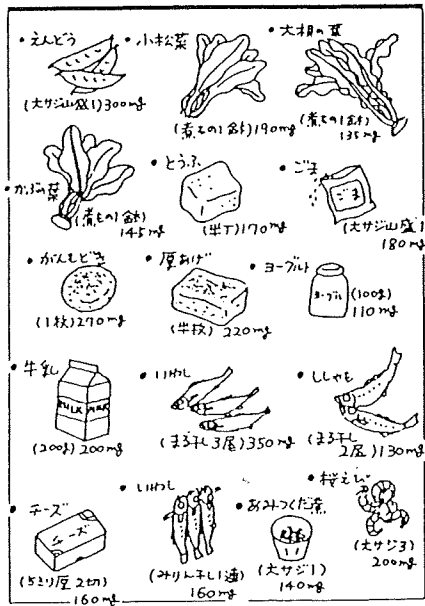 ・えんどう
(大サジ山盛1)300mg
・小松菜
(煮もの1鉢)190mg
・大根の葉
(煮もの1鉢)
135mg
・かぶの葉
(煮もの1鉢)
145mg
・とうふ
(半丁)170mg
・ごま
ごま
(大サジ山盛1)
180mg
・がんもどき
(1枚)270mg
・厚あげ
(半枚)
220mg
・ヨーグルト
ヨーグル
(100g)
110mg
・牛乳
MILK
(200g)200mg
・いわし
(まる干し3尾)350mg
・ししゃも
(まる干し
2尾)130mg
・チーズ
チーズ
(5ミリ厚2切)
160mg
・いわし
(みりん干し1連)
160mg
・あみつくだ煮
(大サジ1)
140mg
・桜えび
(大サジ3)
200mg